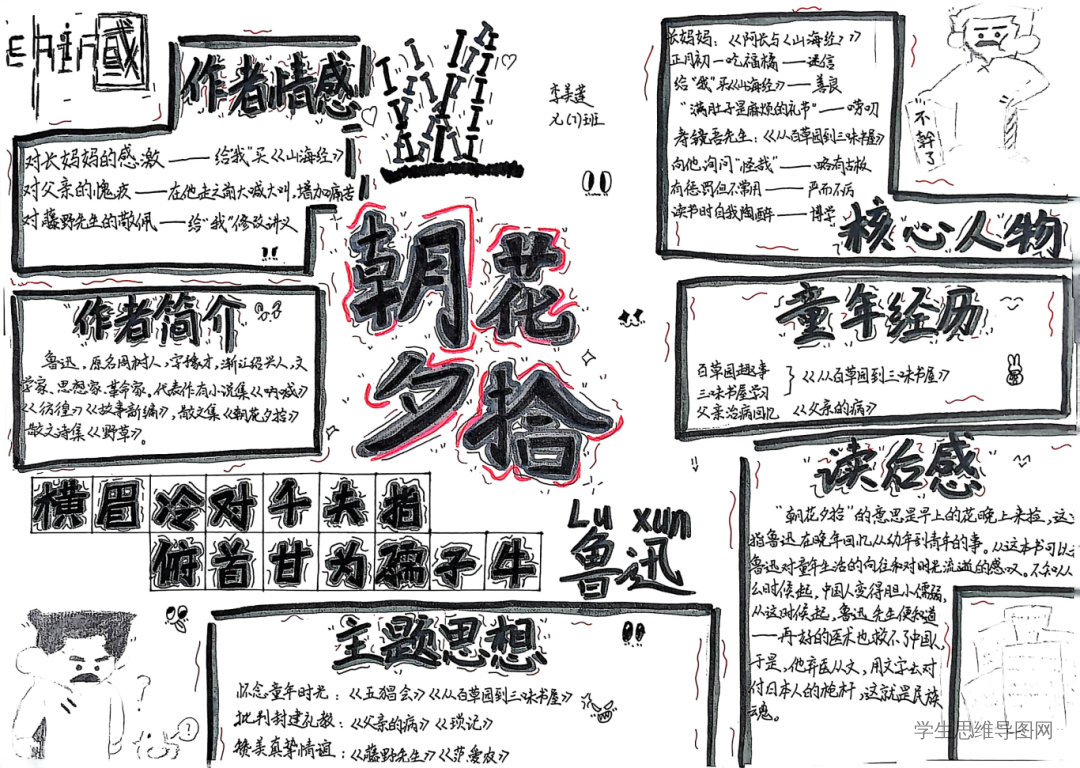 作者情感
对长妈妈的感激——给"我"买《山海经》
对父亲的愧疚——在他走之前大喊大叫,增加痛苦
对藤野先生的敬佩——给"我"修改讲义
作者简介
鲁迅。原名周树人,字豫才,浙江绍兴人,文
学家、思想家、革命家。代表作有小说集《呐喊》
《彷徨》《故事新编》,散文集《朝花夕拾》
散文诗集《野草》。
李美莲
九(1)班
朝花
夕拾
横眉冷对千夫指
俯首甘为孺子牛
Lu xun
鲁迅
长妈妈:《阿长与《山海经》》
正月初一吃福橘——迷信
给"我"买《山海经》——善良
"满肚子是麻烦的礼节"——唠叨
寿镜吾先生:《从百草园到三味书屋》
向他询问"怪哉"——略有古板
有惩罚但不常用——严而不厉
读书时自我陶醉——博学
核心人物
不幹了
童年经历
百草园趣事
三味书屋学习
《从百草园到三味书屋》
父亲治病回忆
《父亲的病》
读后感
"朝花夕拾"的意思是早上的花晚上来捡,这
指鲁迅在晚年回忆从幼年到青年的事。从这本书可以
鲁迅对童年生活的向往和对时光流逝的感叹。不知从
么时候起,中国人变得胆小懦弱,
从这时候起,鲁迅先生便知道
——再好的医术也救不了中国人,
于是,他弃医从文,用文字去对
付日本人的枪杆,这就是民族
魂。
主题思想
怀念童年时光:《五猖会》《从百草园到三味书屋》
批判封建礼教:《父亲的病》《琐记》
赞美真挚情谊:《藤野先生》《范爱农》
学生思维导图网